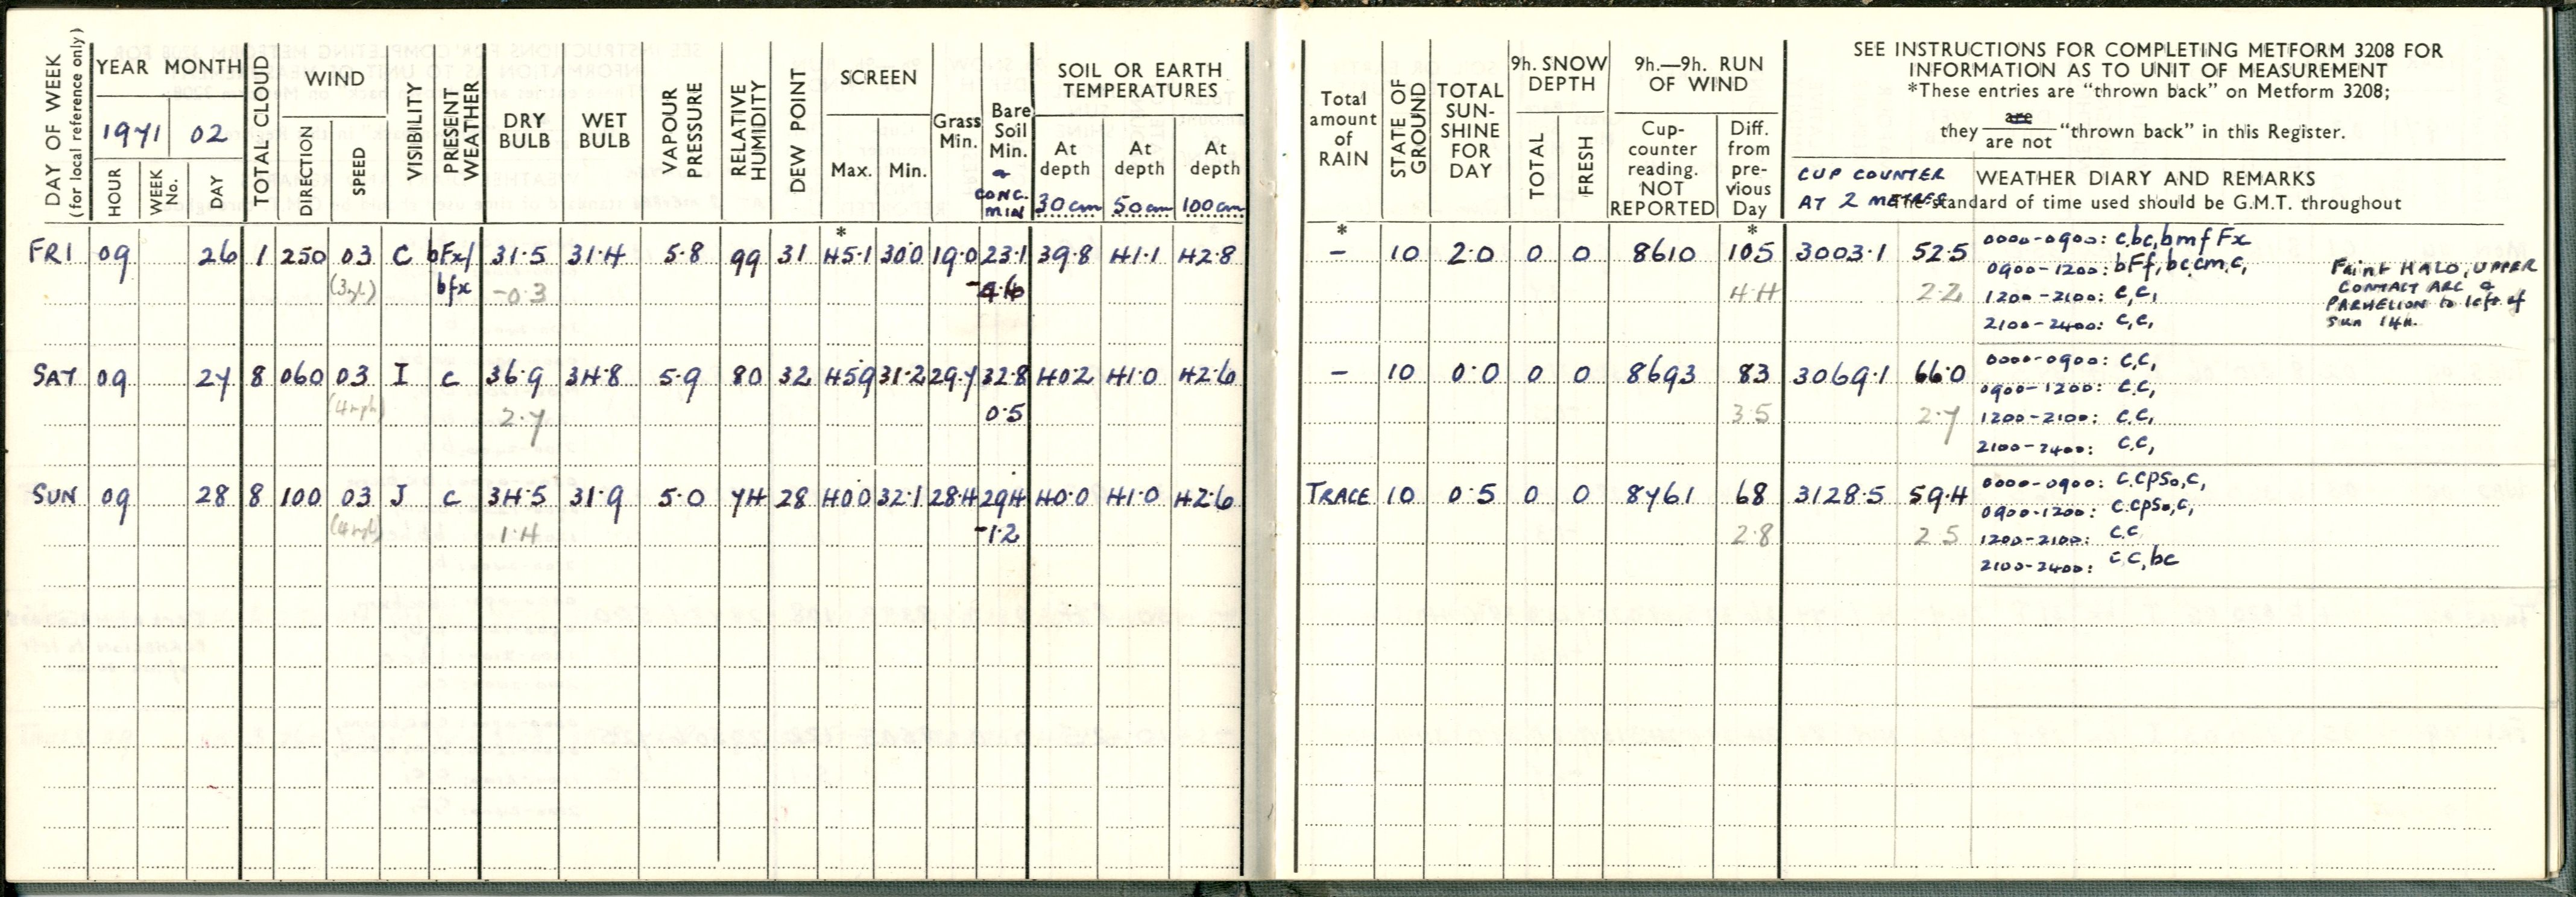 DAY OF WEEK
(for local reference only)
YEAR MONTH
1971 02
HOUR
WEEK No.
DAY
TOTAL CLOUD
WIND
DIRECTION
SPEED
VISIBILITY
PRESENT WEATHER
DRY BULB
WET BULB
VAPOUR PRESSURE
RELATIVE HUMIDITY
DEW POINT
SCREEN
Max. Min.
Grass Min.
Bare Soil Min.
& CONC. MIN
SOIL OR EARTH TEMPERATURES
At depth 30 cm
At depth 50 cm
At depth 100 cm
Total amount of RAIN
STATE OF GROUND
TOTAL SUN-SHINE FOR DAY
9h. SNOW DEPTH
TOTAL
FRESH
9h.—9h. RUN OF WIND
Cup-counter reading. NOT REPORTED
Diff. from pre-vious Day
SEE INSTRUCTIONS FOR COMPLETING METFORM 3208 FOR
INFORMATION AS TO UNIT OF MEASUREMENT
*These entries are "thrown back" on Metform 3208;
they are / are not "thrown back" in this Register.
CUP COUNTER
AT 2 METRES
WEATHER DIARY AND REMARKS
The standard of time used should be G.M.T. throughout
* * *
FRI 09 26 1 250 03 C bFx/ 31.5 31.4 5.8 99 31 45.1 30.0 19.0 23.1 39.8 41.1 42.8 – 10 2.0 0 0 8610 105 3003.1 52.5
bfx
(3 mph) -0.3 -4.6 4.4 2.2
0000-0900: c,bc,bmfFx
0900-1200: bFf,bc,cm,c,
1200-2100: c,c,
2100-2400: c,c,
Faint HALO, UPPER
CONTACT ARC &
PARHELION to left of
sun 14h.
SAT 09 27 8 060 03 I c 36.9 34.8 5.9 80 32 45.9 31.2 29.7 32.8 40.2 41.0 42.6 – 10 0.0 0 0 8693 83 3069.1 66.0
(4 mph) 2.7 0.5 3.5 2.7
0000-0900: c,c,
0900-1200: c.c,
1200-2100: c,c,
2100-2400: c.c,
SUN 09 28 8 100 03 J c 34.5 31.9 5.0 74 28 40.0 32.1 28.4 29.4 40.0 41.0 42.6 TRACE 10 0.5 0 0 8761 68 3128.5 59.4
(4 mph) 1.4 -1.2 2.8 2.5
0000-0900: c.cpSo,c,
0900-1200: c.cpSo,c,
1200-2100: c.c
2100-2400: c,c,bc